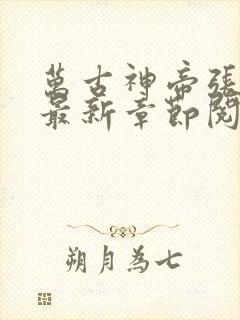 萬古神帝張
最新章節閱
朔月為七